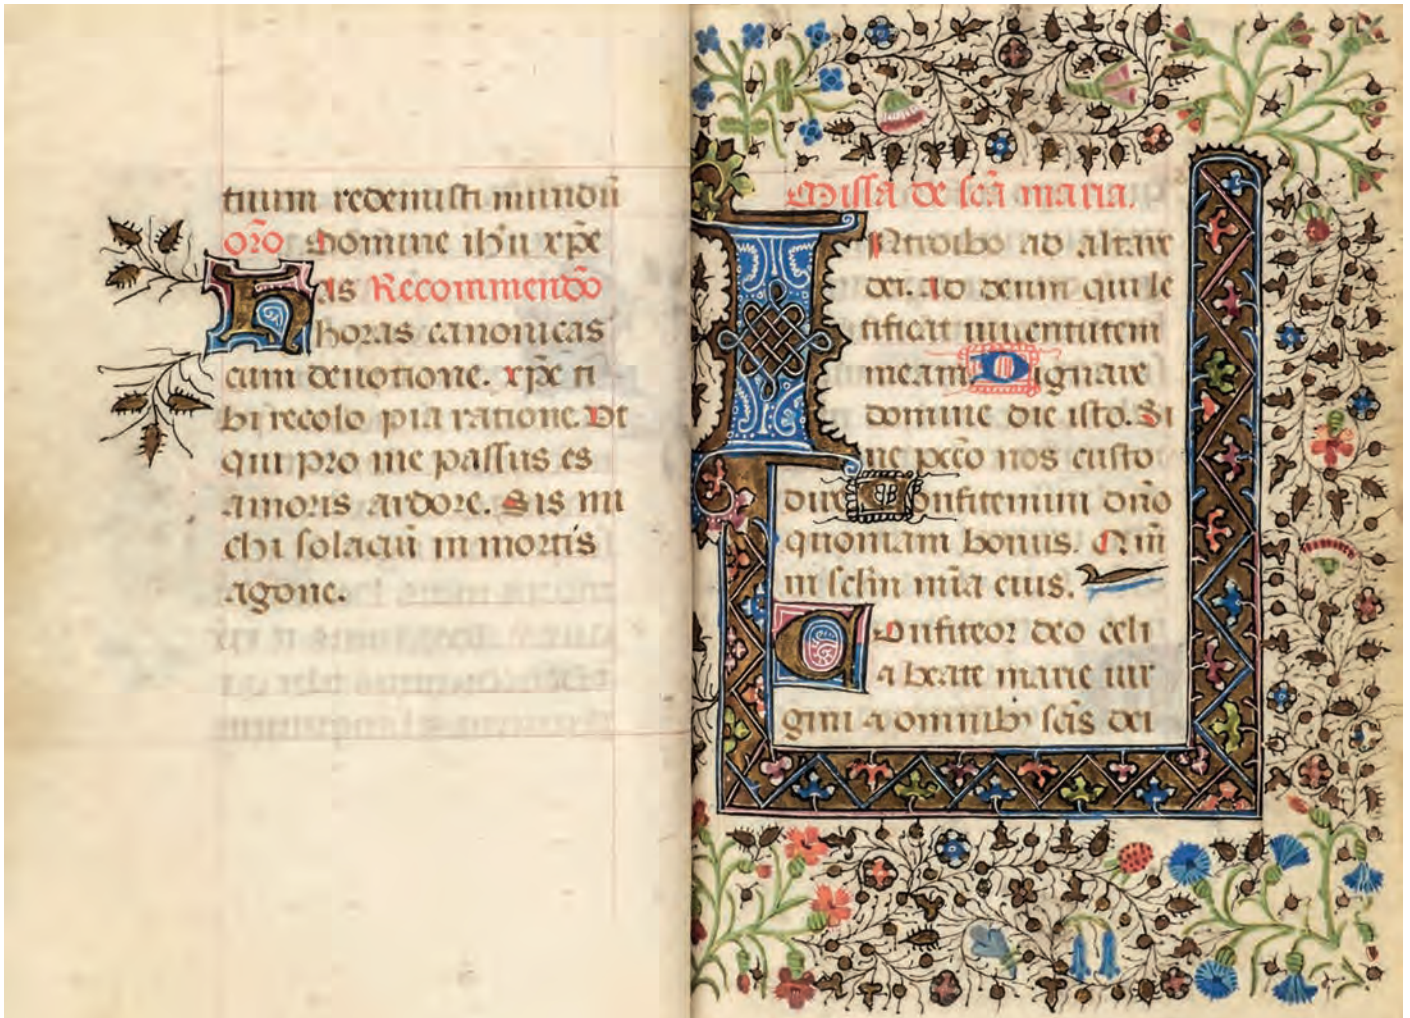 tuum redemisti mundū
oro Domine ih'u xpe
has Recommendo
horas canonicas
cum deuotione. xpe ti
bi recolo pia ratione. Ut
qui pro me passus es
amoris ardore. Sis mi
chi solaciū in mortis
agone.
Missa de scā maria.
Introibo ad altare
dei. Ad deum qui le
tificat iuuentutem
meam Dignare
domine die isto. Si
ne pccō nos custo
dire Confitemini dño
quoniam bonus. Qm̄
in sclm mīa eius.
Confiteor deo celi
a beate marie uir
gini a omnib; scīs dei